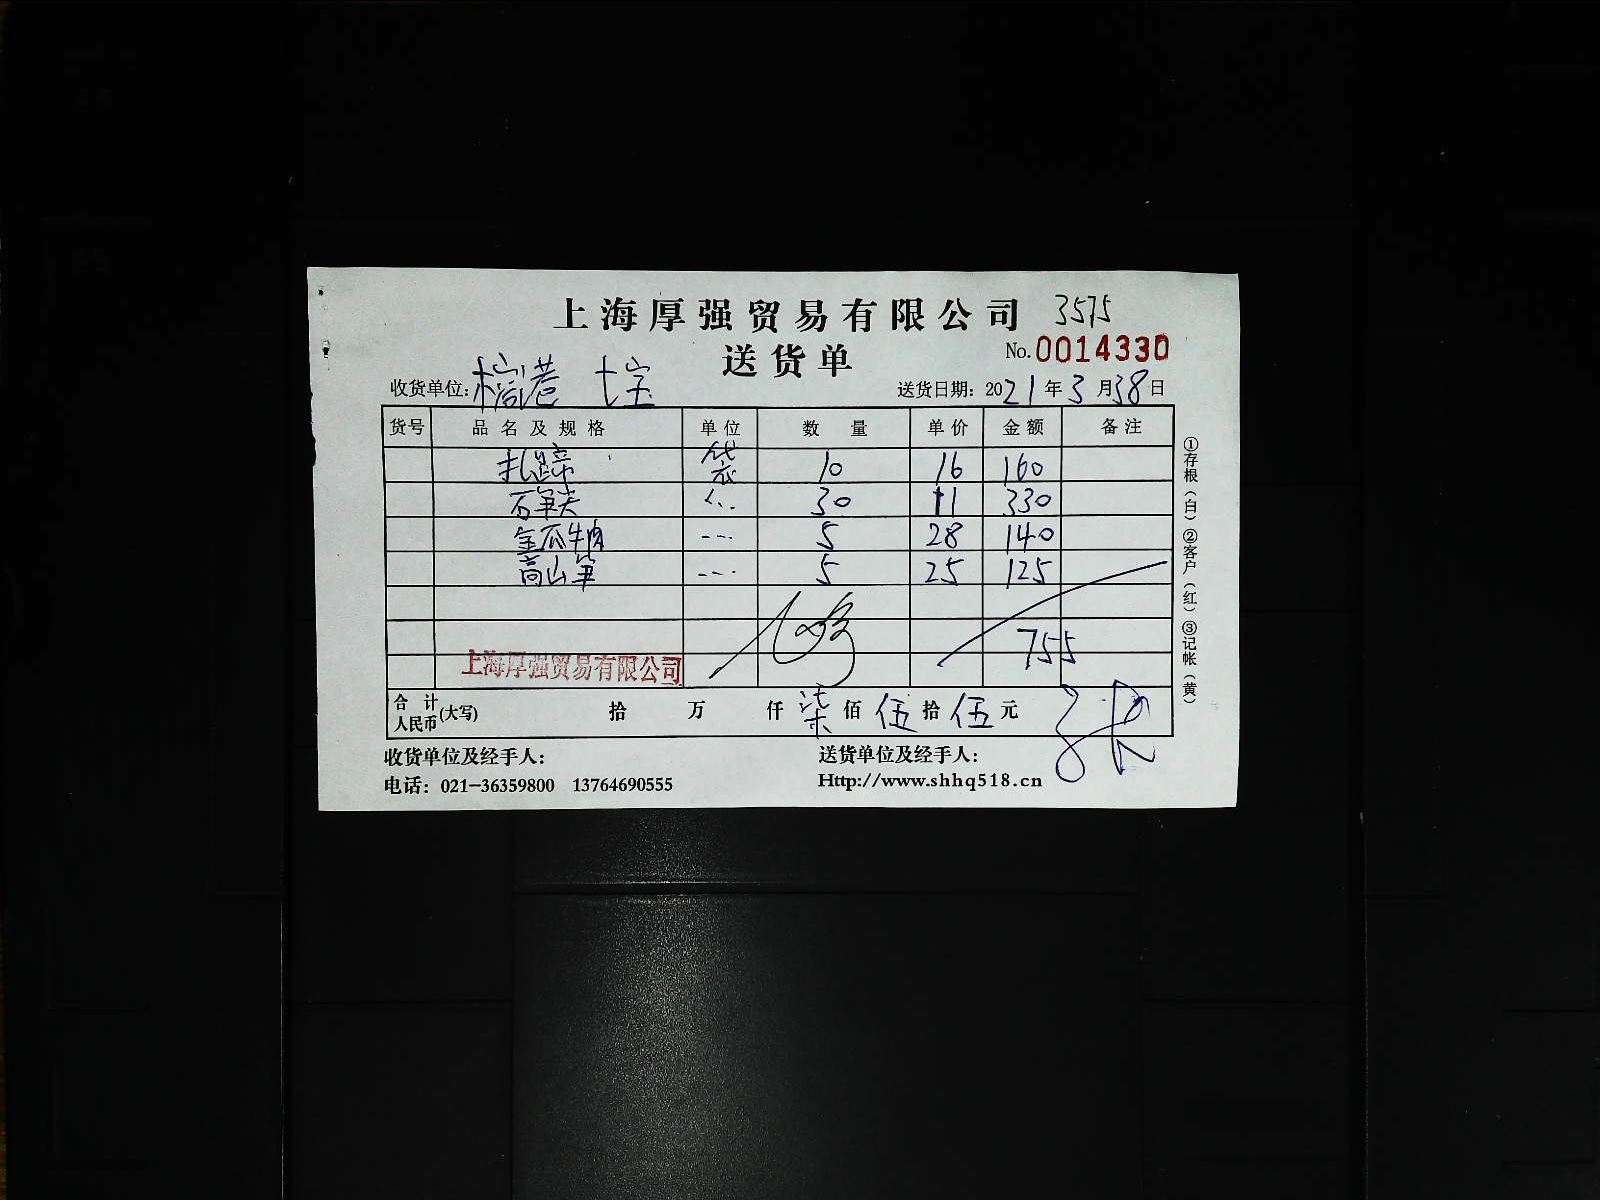 上海厚强贸易有限公司 3575
送货单 No.0014330
收货单位: 七宝 送货日期: 2021年3月38日
货号 品名及规格 单位 数量 单价 金额 备注
扎蹄 袋 10 16 160
石笋尖 30 11 330
金瓜牛肉 --- 5 28 140
高山笋 --- 5 25 125
755
上海厚强贸易有限公司
合计人民币(大写) 拾 万 仟 柒 佰 伍 拾 伍 元
收货单位及经手人: 送货单位及经手人:
电话: 021-36359800 13764690555 Http://www.shhq518.cn
①存根(白)②客户(红)③记帐(黄)